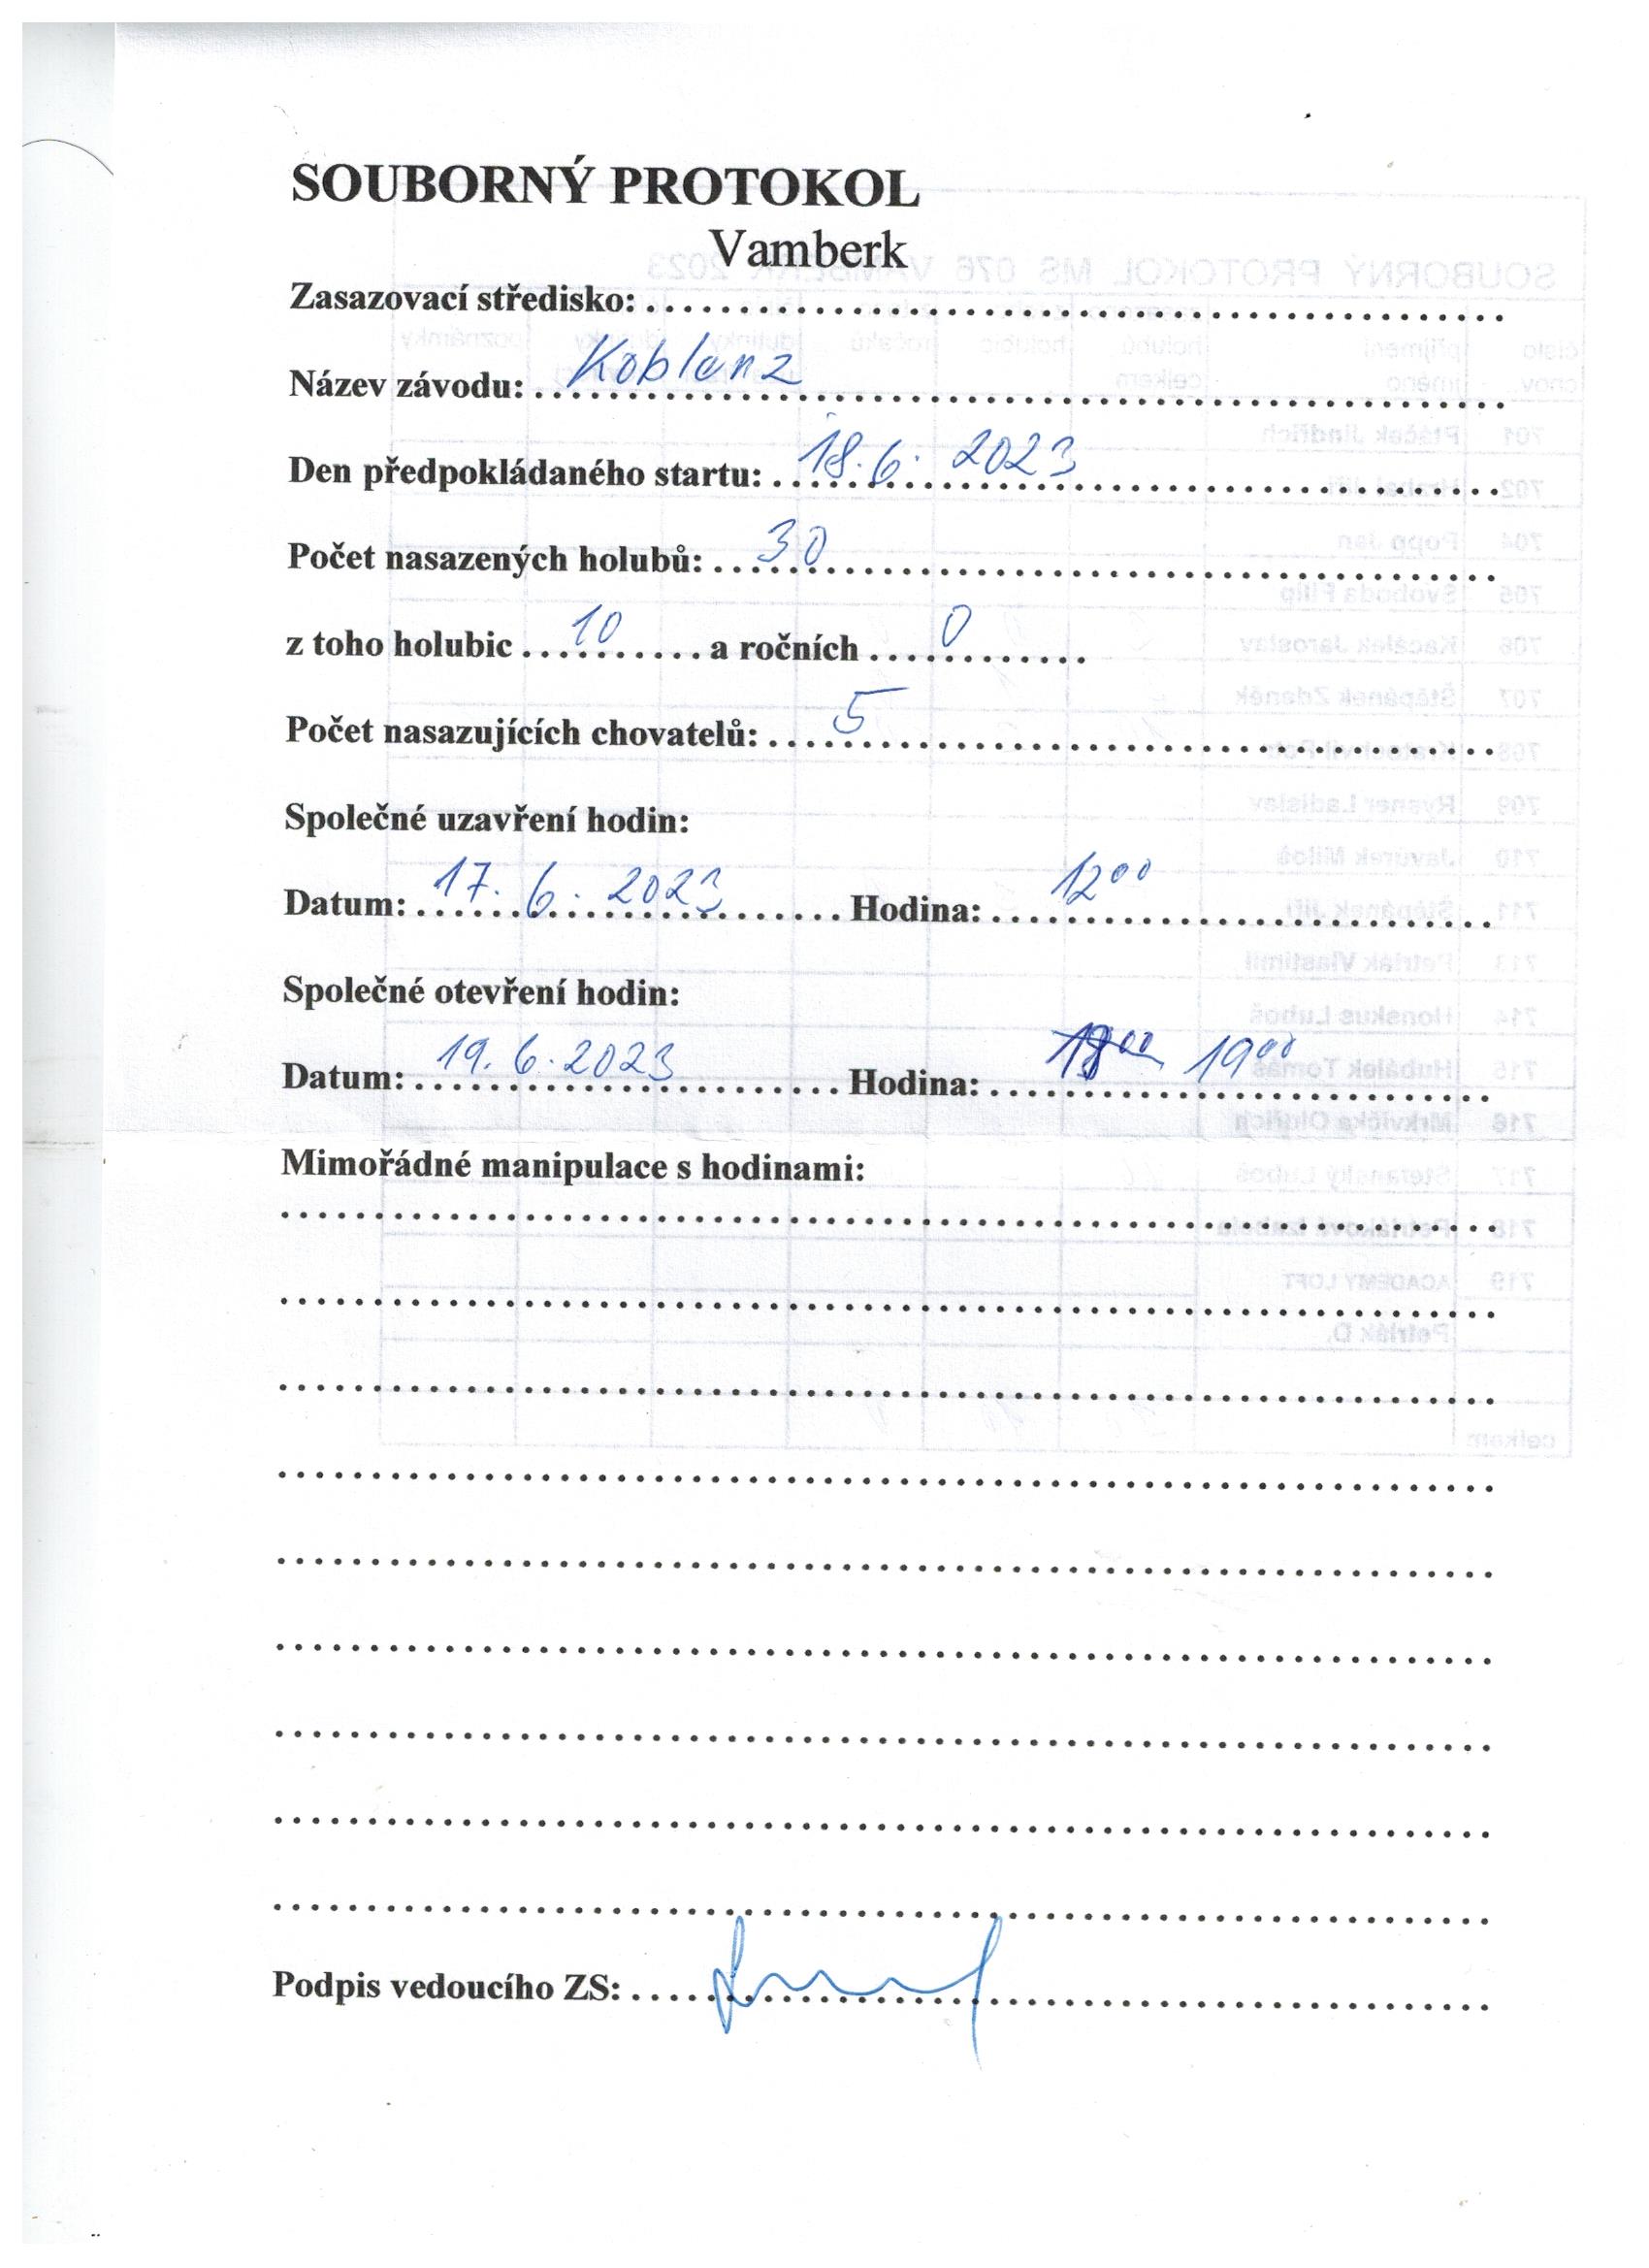 SOUBORNÝ PROTOKOL
Vamberk
Zasazovací středisko: ..........
Název závodu: Koblenz
Den předpokládaného startu: 18. 6. 2023
Počet nasazených holubů: 30
z toho holubic 10 a ročních 0
Počet nasazujících chovatelů: 5
Společné uzavření hodin:
Datum: 17. 6. 2023 Hodina: 12⁰⁰
Společné otevření hodin:
Datum: 19. 6. 2023 Hodina: 19⁰⁰
Mimořádné manipulace s hodinami:
Podpis vedoucího ZS: